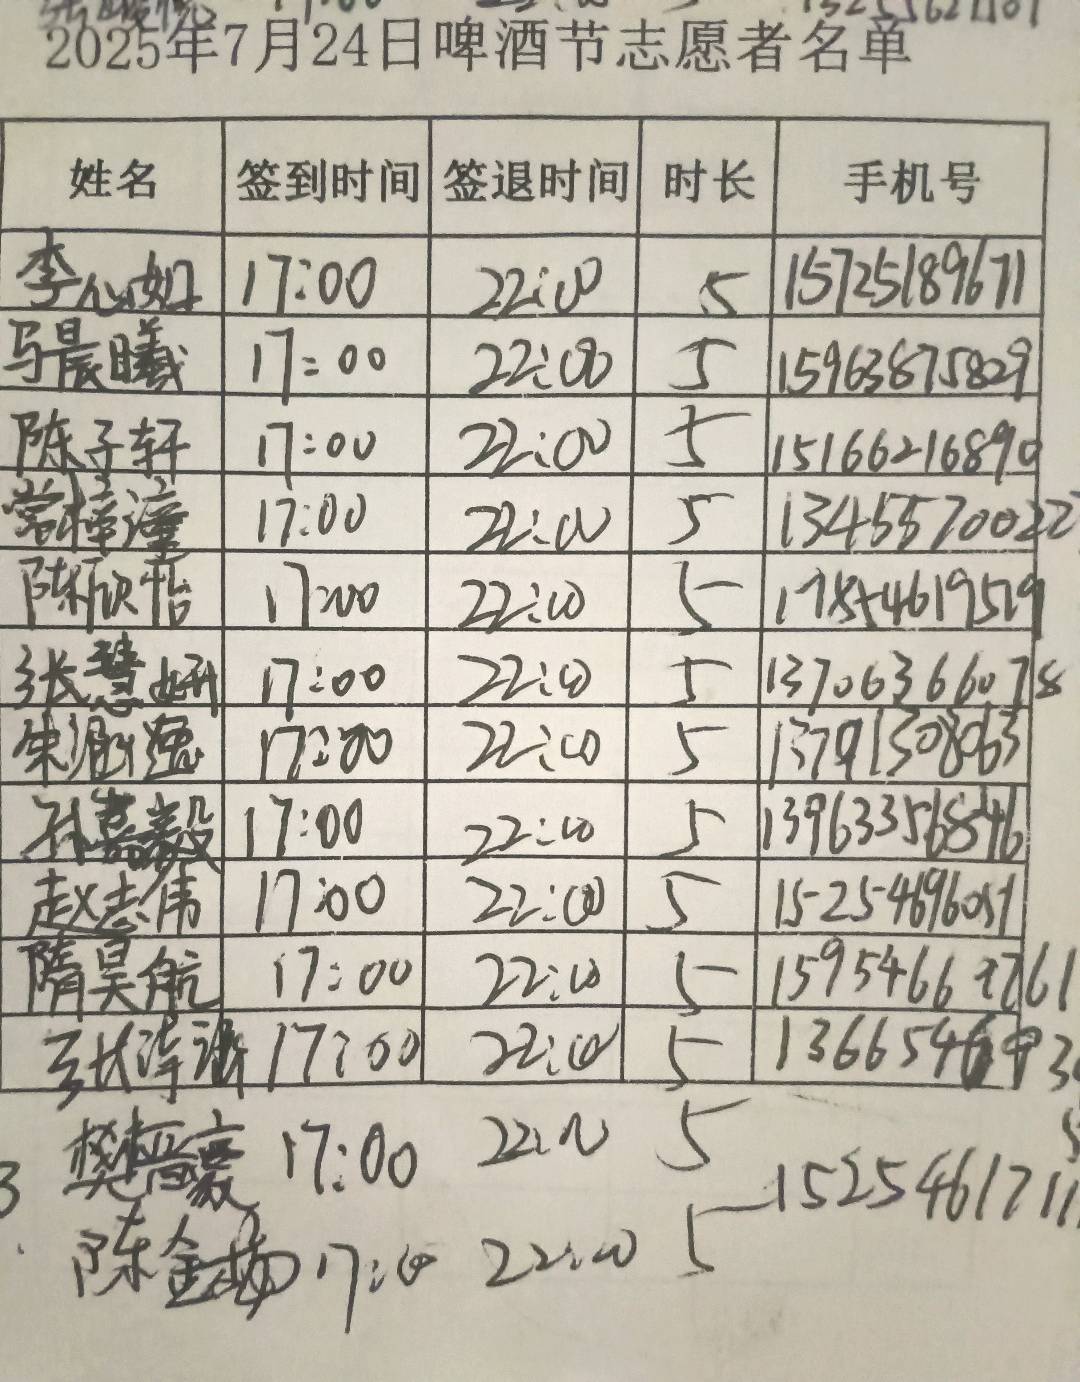 17:00 22:00 5 13255621101
2025年7月24日啤酒节志愿者名单
姓名 签到时间 签退时间 时长 手机号
李心如 17:00 22:00 5 15725189671
马晨曦 17:00 22:00 5 15963875829
陈子轩 17:00 22:00 5 15166216890
常梓潼 17:00 22:00 5
陈欣怡 17:00 22:00 5 17854619519
张慧妍 17:00 22:00 5 13706366078
朱 17:00 22:00 5 13791308063
孙嘉毅 17:00 22:00 5 13963356846
赵志伟 17:00 22:00 5 15254696051
隋昊航 17:00 22:00 5
张 17:00 22:00 5
樊 豪 17:00 22:00 5
陈金扬 17:00 22:00 5